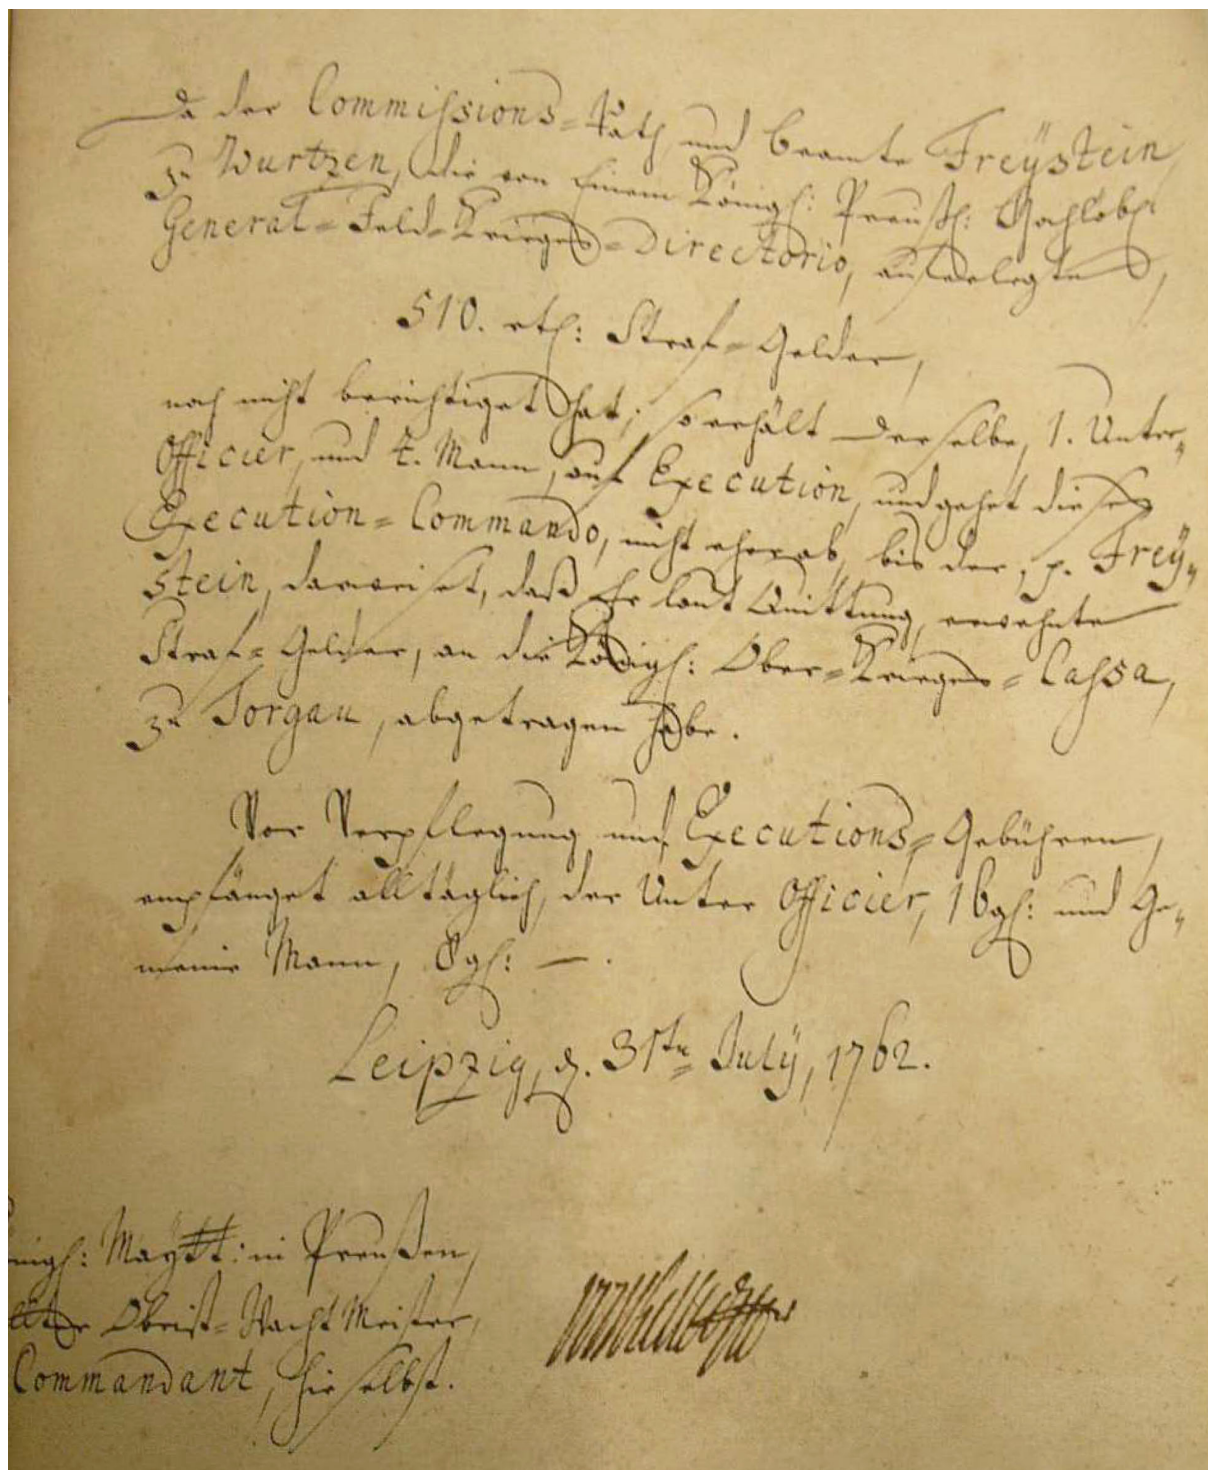 Da der Commissions=Rath und beamte Freÿstein,
zu Wurtzen, die von Einem Königl: Preußl: Hochlöbl.
General=Feld=Krieges=Directorio, auferlegte,
510. rtl: Straf=Gelder,
noch nicht berichtiget hat; so erhält derselbe, 1. Unter„
Officier, und 4. Mann, auf Execution, und gehet dieses
Execution=Commando, nicht eher ab, bis der, p. Freÿ„
stein, darweiset, daß Er laut Quittung, erwehnte
Straf=Gelder, an die Königl: Ober=Krieges=Cassa,
zu Torgau, abgetragen habe.
Vor Verpflegung und Executions=Gebühren,
empfänget alltäglich, der Unter Officier, 16 gl: und Ge„
meine Mann, 8 gl: —.
Leipzig, d. 31tn Julÿ, 1762.
nigl: Maÿtt: in Preußen,
Obrist=Wacht Meister,
Commandant, hieselbst.